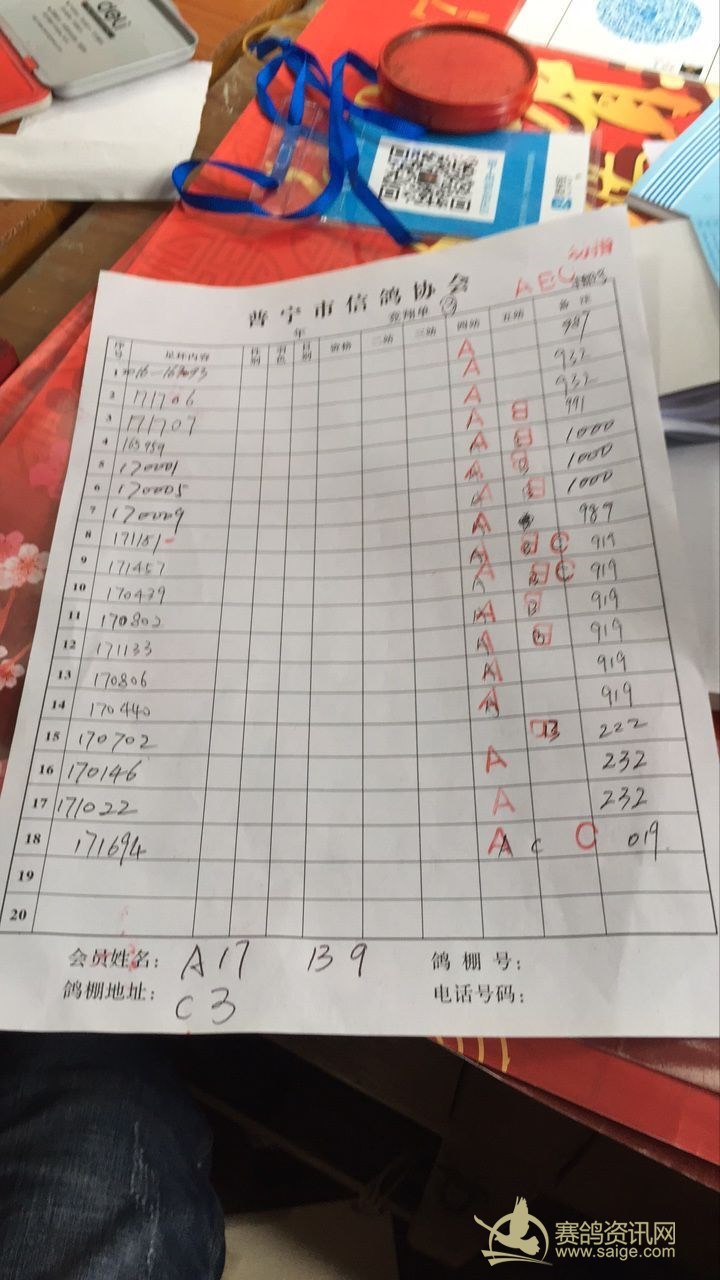 deli
普宁市信鸽协会
年 竞翔单 ③
A B C
序号 足环内容 性别 羽色 二站 三站 四站 五站 备注
1 2016-163093 A 987
2 171706 A 932
3 171707 A 932
4 163959 A B 991
5 170001 A B 1000
6 170005 A B 1000
7 170009 A B 1000
8 171151 A 987
9 171457 A B C 919
10 170439 A B C 919
11 170802 A B 919
12 171133 A B 919
13 170806 A 919
14 170440 A 919
15 170702 B 222
16 170146 A 232
17 171022 A 232
18 171694 A A C C 019
19
20
会员姓名: A17 B9 鸽棚号:
鸽棚地址: C3 电话号码:
赛鸽资讯网
www.saige.com